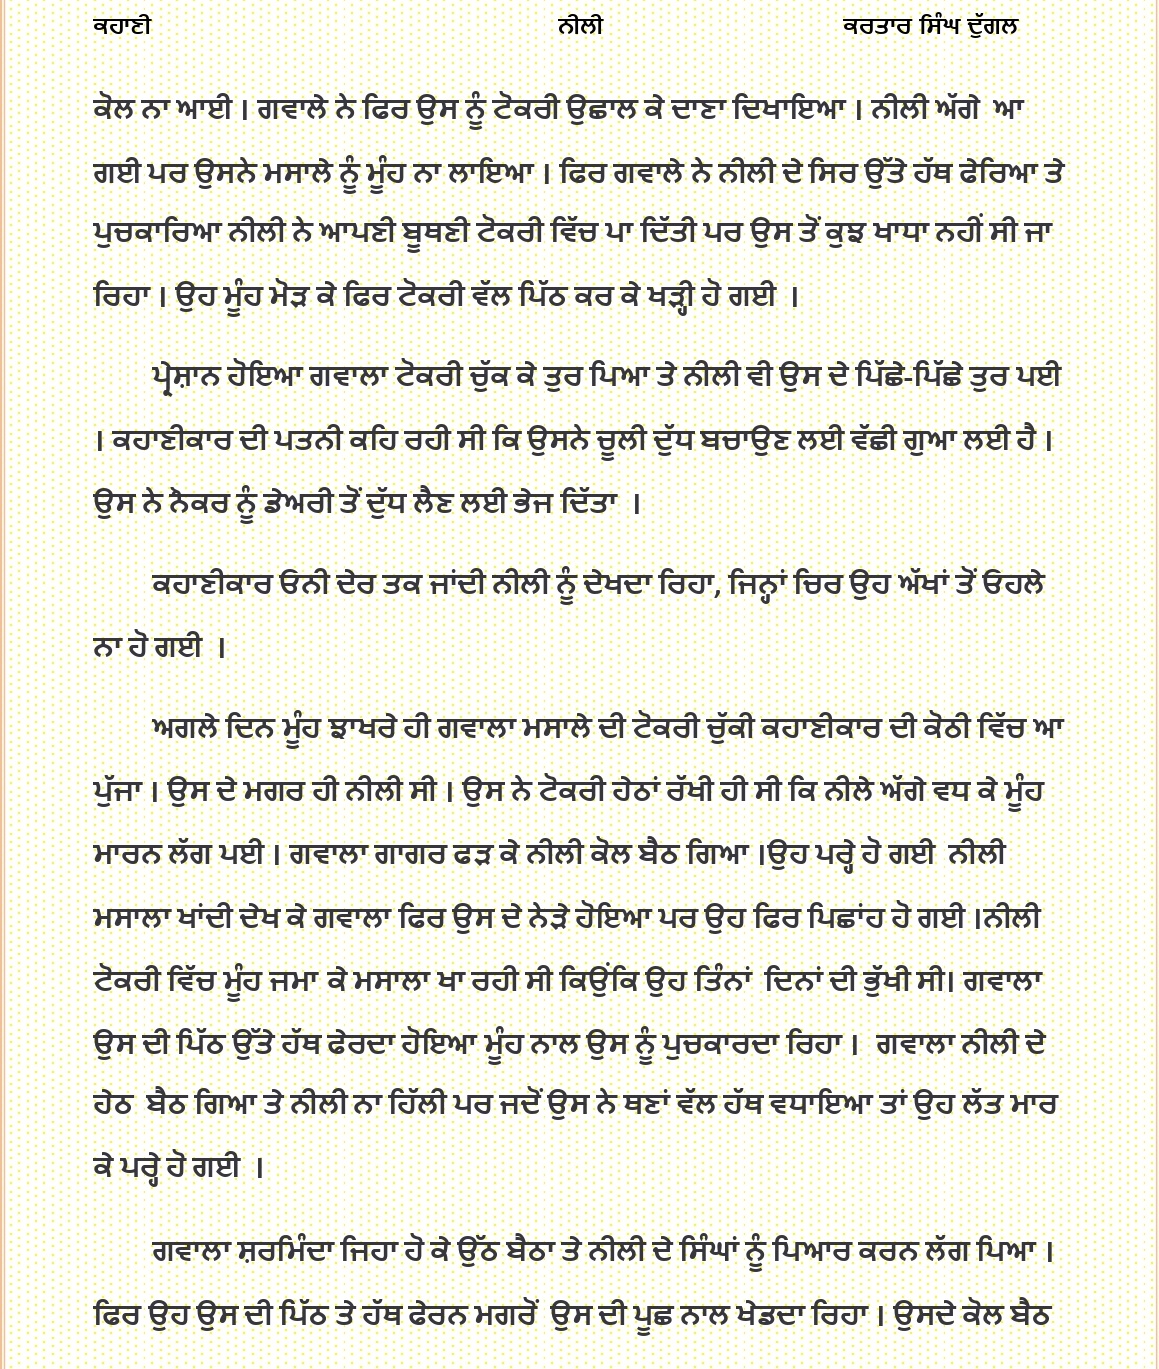 ਕਹਾਣੀ ਨੀਲੀ ਕਰਤਾਰ ਸਿੰਘ ਦੁੱਗਲ
ਕੋਲ ਨਾ ਆਈ । ਗਵਾਲੇ ਨੇ ਫਿਰ ਉਸ ਨੂੰ ਟੋਕਰੀ ਉਛਾਲ ਕੇ ਦਾਣਾ ਦਿਖਾਇਆ । ਨੀਲੀ ਅੱਗੇ ਆ
ਗਈ ਪਰ ਉਸਨੇ ਮਸਾਲੇ ਨੂੰ ਮੂੰਹ ਨਾ ਲਾਇਆ । ਫਿਰ ਗਵਾਲੇ ਨੇ ਨੀਲੀ ਦੇ ਸਿਰ ਉੱਤੇ ਹੱਥ ਫੇਰਿਆ ਤੇ
ਪੁਚਕਾਰਿਆ ਨੀਲੀ ਨੇ ਆਪਣੀ ਬੂਥਣੀ ਟੋਕਰੀ ਵਿੱਚ ਪਾ ਦਿੱਤੀ ਪਰ ਉਸ ਤੋਂ ਕੁਝ ਖਾਧਾ ਨਹੀਂ ਸੀ ਜਾ
ਰਿਹਾ । ਉਹ ਮੂੰਹ ਮੋੜ ਕੇ ਫਿਰ ਟੋਕਰੀ ਵੱਲ ਪਿੱਠ ਕਰ ਕੇ ਖੜ੍ਹੀ ਹੋ ਗਈ ।
ਪ੍ਰੇਸ਼ਾਨ ਹੋਇਆ ਗਵਾਲਾ ਟੋਕਰੀ ਚੁੱਕ ਕੇ ਤੁਰ ਪਿਆ ਤੇ ਨੀਲੀ ਵੀ ਉਸ ਦੇ ਪਿੱਛੇ-ਪਿੱਛੇ ਤੁਰ ਪਈ
। ਕਹਾਣੀਕਾਰ ਦੀ ਪਤਨੀ ਕਹਿ ਰਹੀ ਸੀ ਕਿ ਉਸਨੇ ਚੂਲੀ ਦੁੱਧ ਬਚਾਉਣ ਲਈ ਵੱਛੀ ਗੁਆ ਲਈ ਹੈ ।
ਉਸ ਨੇ ਨੋਕਰ ਨੂੰ ਡੇਅਰੀ ਤੋਂ ਦੁੱਧ ਲੈਣ ਲਈ ਭੇਜ ਦਿੱਤਾ ।
ਕਹਾਣੀਕਾਰ ਓਨੀ ਦੇਰ ਤਕ ਜਾਂਦੀ ਨੀਲੀ ਨੂੰ ਦੇਖਦਾ ਰਿਹਾ, ਜਿਨ੍ਹਾਂ ਚਿਰ ਉਹ ਅੱਖਾਂ ਤੋਂ ਓਹਲੇ
ਨਾ ਹੋ ਗਈ ।
ਅਗਲੇ ਦਿਨ ਮੂੰਹ ਝਾਖਰੇ ਹੀ ਗਵਾਲਾ ਮਸਾਲੇ ਦੀ ਟੋਕਰੀ ਚੁੱਕੀ ਕਹਾਣੀਕਾਰ ਦੀ ਕੋਠੀ ਵਿੱਚ ਆ
ਪੁੱਜਾ । ਉਸ ਦੇ ਮਗਰ ਹੀ ਨੀਲੀ ਸੀ । ਉਸ ਨੇ ਟੋਕਰੀ ਹੇਠਾਂ ਰੱਖੀ ਹੀ ਸੀ ਕਿ ਨੀਲੇ ਅੱਗੇ ਵਧ ਕੇ ਮੂੰਹ
ਮਾਰਨ ਲੱਗ ਪਈ । ਗਵਾਲਾ ਗਾਗਰ ਫੜ ਕੇ ਨੀਲੀ ਕੋਲ ਬੈਠ ਗਿਆ ।ਉਹ ਪਰ੍ਹੇ ਹੋ ਗਈ ਨੀਲੀ
ਮਸਾਲਾ ਖਾਂਦੀ ਦੇਖ ਕੇ ਗਵਾਲਾ ਫਿਰ ਉਸ ਦੇ ਨੇੜੇ ਹੋਇਆ ਪਰ ਉਹ ਫਿਰ ਪਿਛਾਂਹ ਹੋ ਗਈ ।ਨੀਲੀ
ਟੋਕਰੀ ਵਿੱਚ ਮੂੰਹ ਜਮਾ ਕੇ ਮਸਾਲਾ ਖਾ ਰਹੀ ਸੀ ਕਿਉਂਕਿ ਉਹ ਤਿੰਨਾਂ ਦਿਨਾਂ ਦੀ ਭੁੱਖੀ ਸੀ। ਗਵਾਲਾ
ਉਸ ਦੀ ਪਿੱਠ ਉੱਤੇ ਹੱਥ ਫੇਰਦਾ ਹੋਇਆ ਮੂੰਹ ਨਾਲ ਉਸ ਨੂੰ ਪੁਚਕਾਰਦਾ ਰਿਹਾ । ਗਵਾਲਾ ਨੀਲੀ ਦੇ
ਹੇਠ ਬੈਠ ਗਿਆ ਤੇ ਨੀਲੀ ਨਾ ਹਿੱਲੀ ਪਰ ਜਦੋਂ ਉਸ ਨੇ ਥਣਾਂ ਵੱਲ ਹੱਥ ਵਧਾਇਆ ਤਾਂ ਉਹ ਲੱਤ ਮਾਰ
ਕੇ ਪਰ੍ਹੇ ਹੋ ਗਈ ।
ਗਵਾਲਾ ਸ਼ਰਮਿੰਦਾ ਜਿਹਾ ਹੋ ਕੇ ਉੱਠ ਬੈਠਾ ਤੇ ਨੀਲੀ ਦੇ ਸਿੰਘਾਂ ਨੂੰ ਪਿਆਰ ਕਰਨ ਲੱਗ ਪਿਆ ।
ਫਿਰ ਉਹ ਉਸ ਦੀ ਪਿੱਠ ਤੇ ਹੱਥ ਫੇਰਨ ਮਗਰੋਂ ਉਸ ਦੀ ਪੂਛ ਨਾਲ ਖੇਡਦਾ ਰਿਹਾ । ਉਸਦੇ ਕੋਲ ਬੈਠ